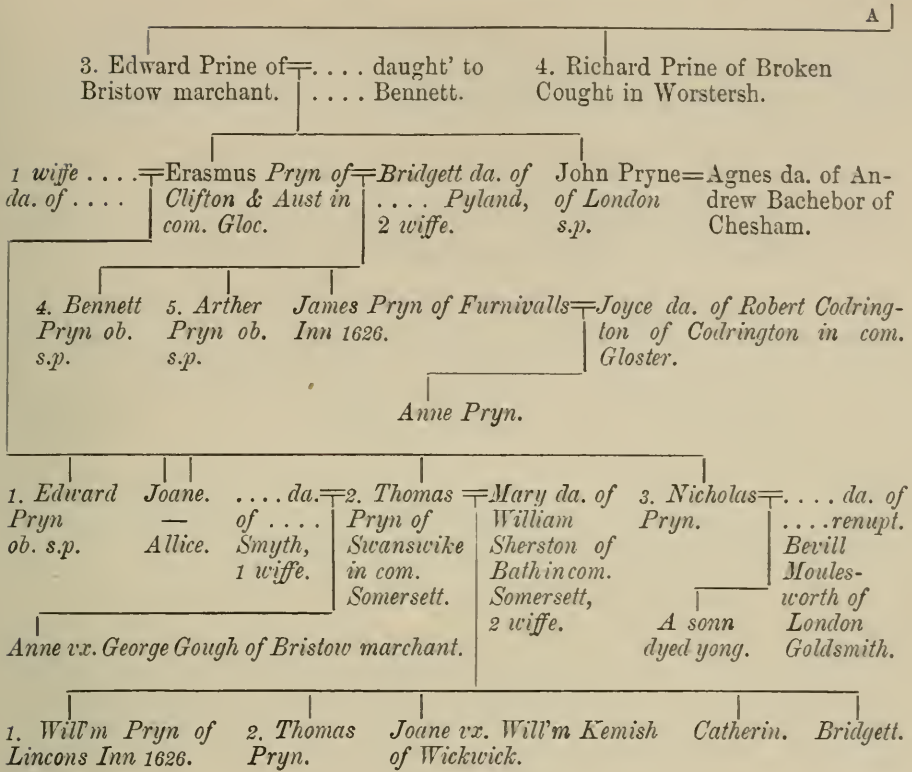 A
3. Edward Prine of . . . . daught' to
Bristow marchant. . . . . Bennett.
4. Richard Prine of Broken
Cought in Worstersh.
1 wiffe . . . .
da. of . . . .
Erasmus Pryn of
Clifton & Aust in
com. Gloc.
Bridgett da. of
. . . . Pyland,
2 wiffe.
John Pryne=Agnes da. of An-
of London drew Bachebor of
s.p. Chesham.
4. Bennett
Pryn ob.
s.p.
5. Arther
Pryn ob.
s.p.
James Pryn of Furnivalls
Inn 1626.
Joyce da. of Robert Codring-
ton of Codrington in com.
Gloster.
Anne Pryn.
1. Edward
Pryn
ob. s.p.
Joane.
—
Allice.
. . . . da.
of . . . .
Smyth,
1 wiffe.
2. Thomas
Pryn of
Swanswike
in com.
Somersett.
Mary da. of
William
Sherston of
Bath in com.
Somersett,
2 wiffe.
3. Nicholas
Pryn.
. . . . da. of
. . . . renupt.
Bevill
Moules-
worth of
London
Goldsmith.
A sonn
dyed yong.
Anne vx. George Gough of Bristow marchant.
1. Will'm Pryn of
Lincons Inn 1626.
2. Thomas
Pryn.
Joane vx. Will'm Kemish
of Wickwick.
Catherin.
Bridgett.